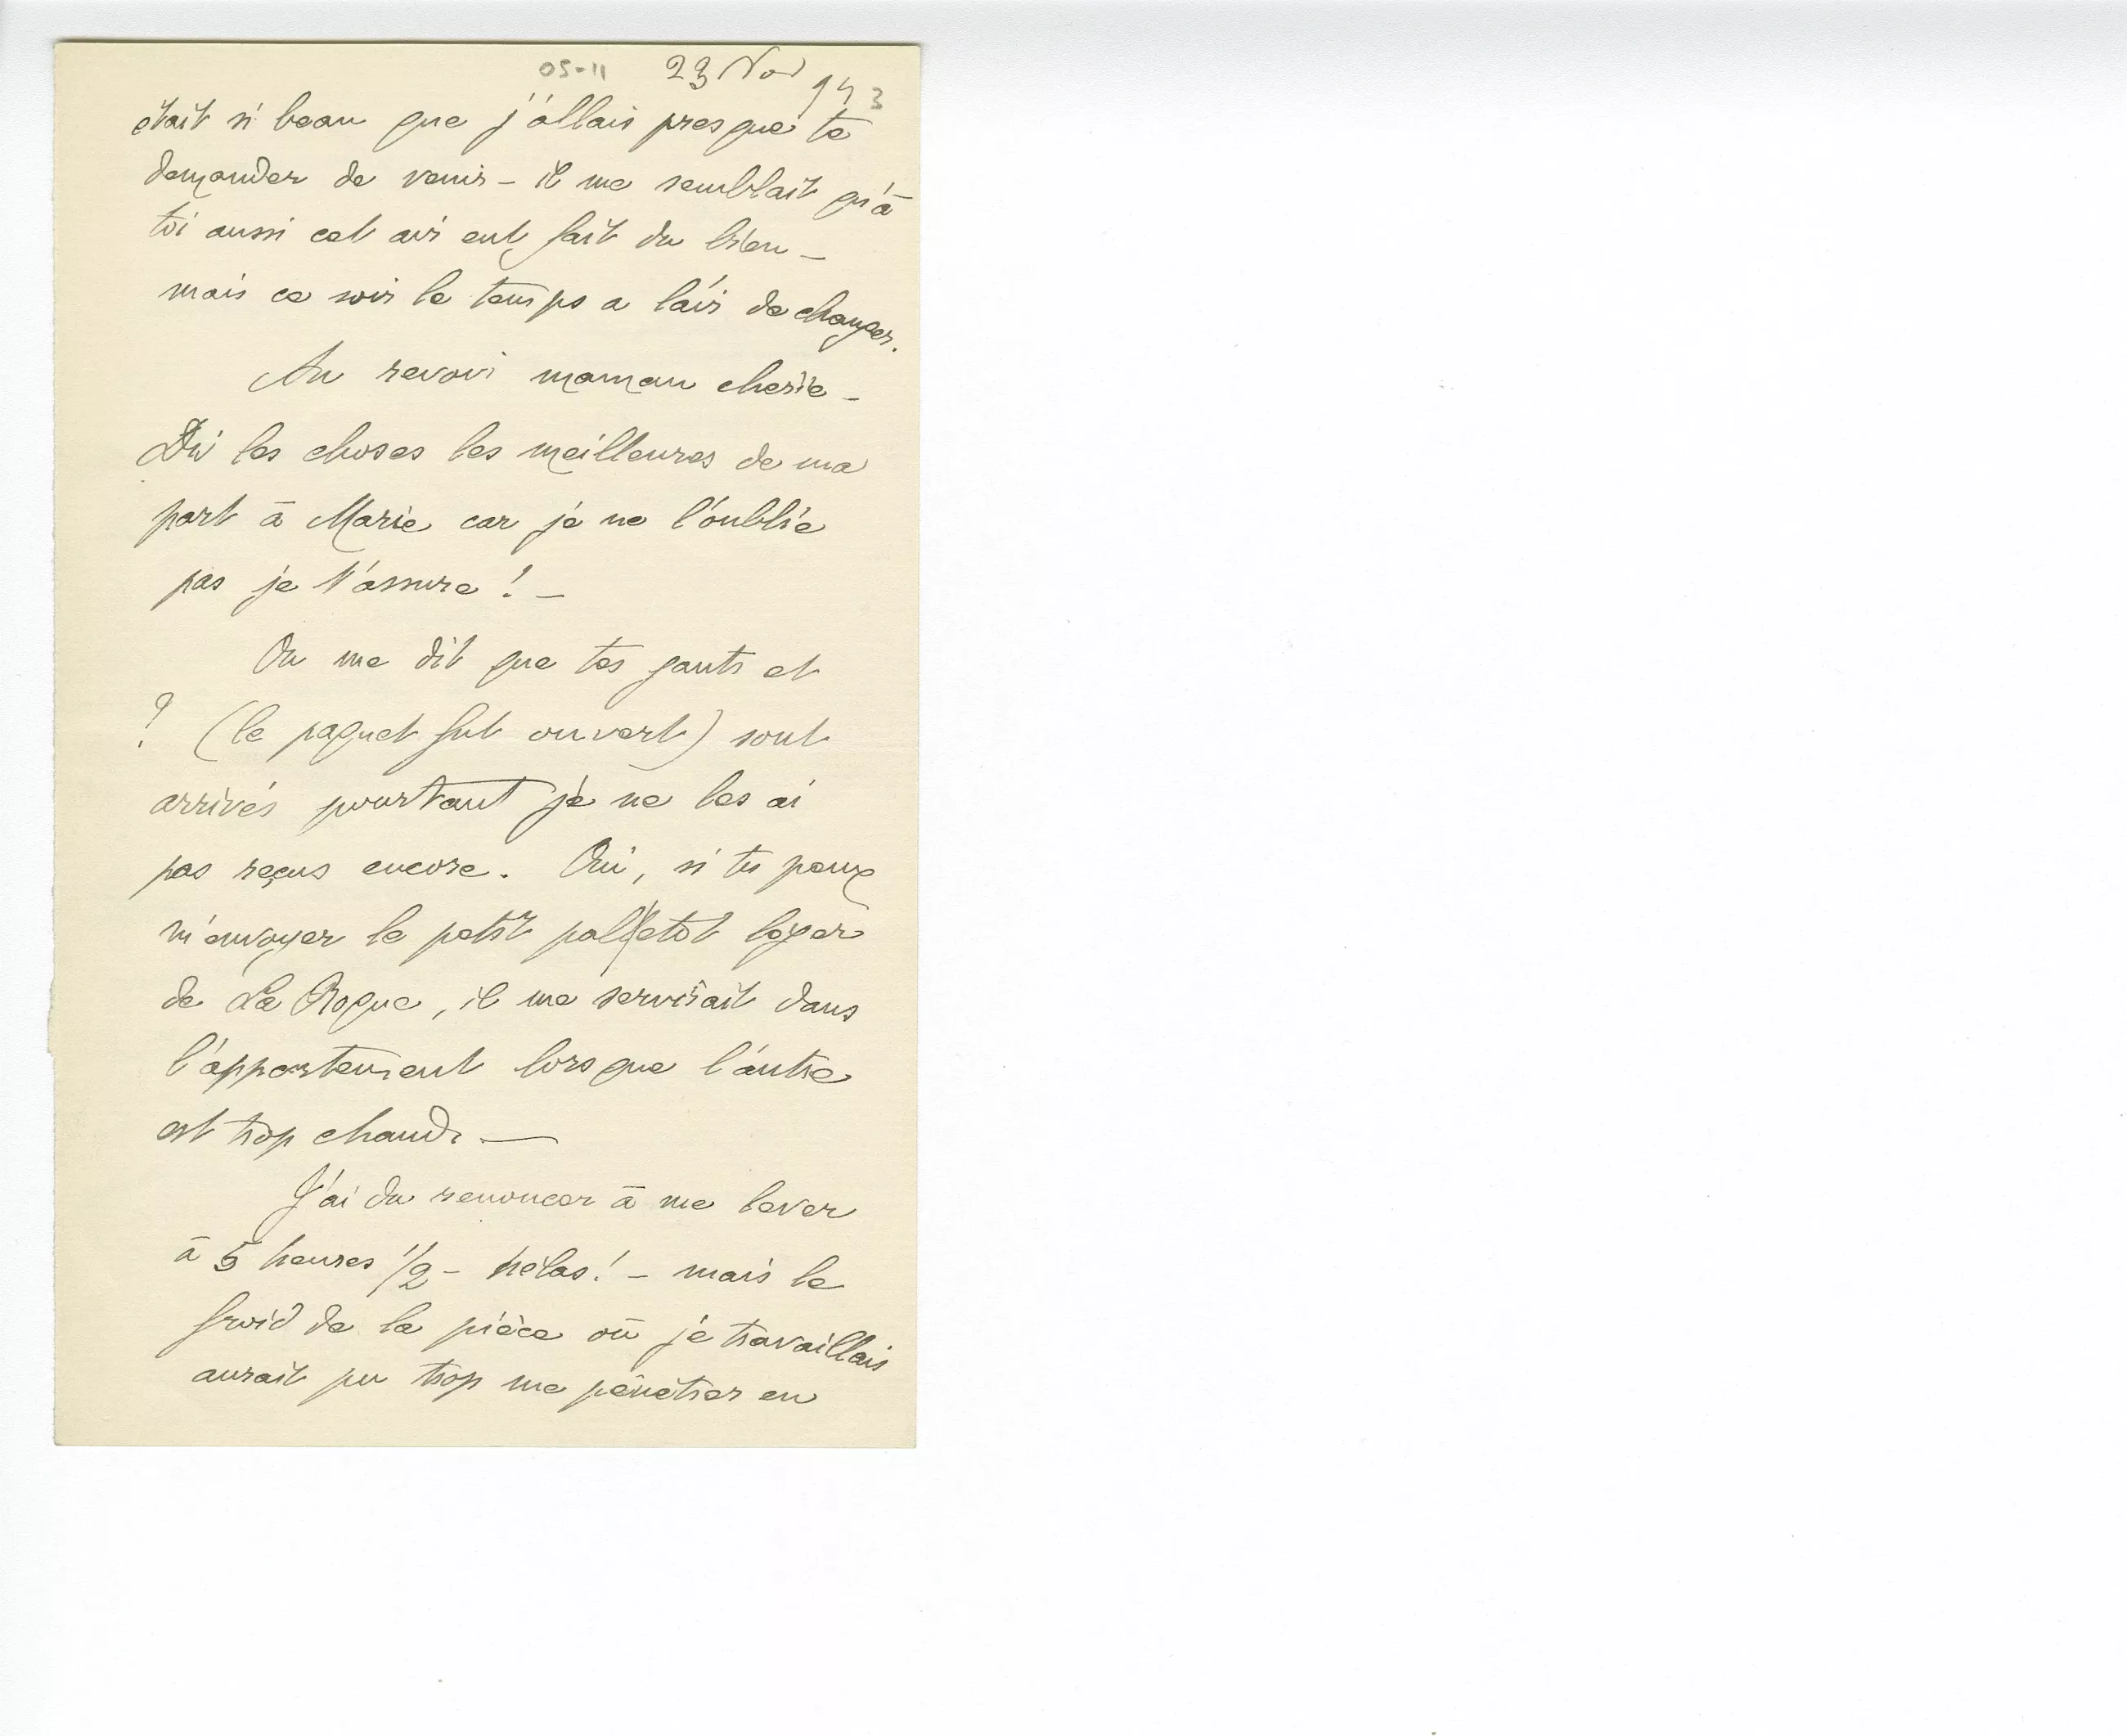 05-11 23 Nov 94 3
était si beau que j'allais presque te
demander de venir – il me semblait qu'à
toi aussi cet air eut fait du bien –
mais ce soir le temps a l'air de changer.
Au revoir maman cherie –
Dis les choses les meilleures de ma
part à Marie car je ne l'oublie
pas je t'assure ! –
On me dit que tes gants et
? (le paquet fut ouvert) sont
arrivés pourtant je ne les ai
pas reçus encore. Oui, si tu peux
m'envoyer le petit paletot léger
de La Roque, il me servirait dans
l'appartement lorsque l'autre
est trop chaud. —
J'ai du renoncer à me lever
à 5 heures 1/2 – hélas ! – mais le
froid de la pièce où je travaillais
aurait pu trop me pénétrer en